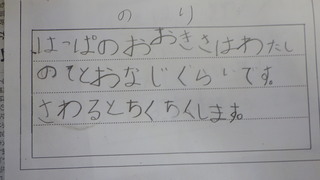 のり
はっぱのおおきさはわたし
のてとおなじくらいです。
さわるとちくちくします。